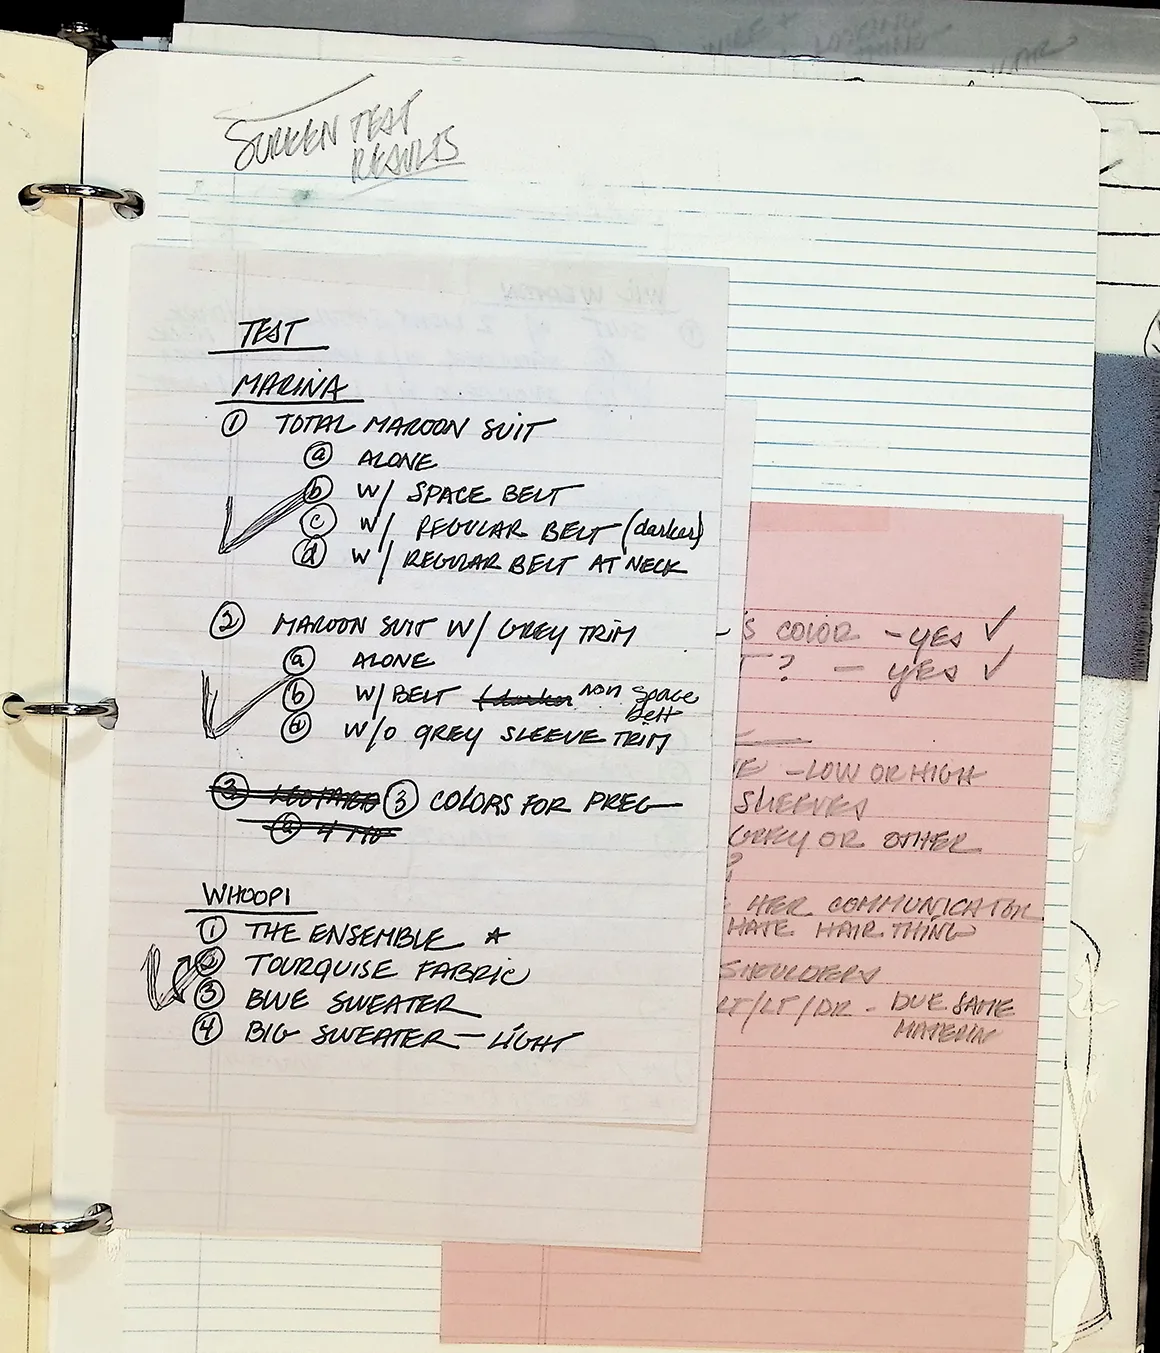 SCREEN TEST
RESULTS
TEST
MARINA
① TOTAL MAROON SUIT
ⓐ ALONE
ⓑ W/ SPACE BELT
ⓒ W/ REGULAR BELT (darker)
ⓓ W/ REGULAR BELT AT NECK
② MAROON SUIT W/ GREY TRIM
ⓐ ALONE
ⓑ W/ BELT (darker non space
belt
ⓓ W/O GREY SLEEVE TRIM
③ LEOTARD ③ COLORS FOR PREG
ⓐ 4 MO
WHOOPI
① THE ENSEMBLE ☆
② TOURQUISE FABRIC
③ BLUE SWEATER
④ BIG SWEATER — LIGHT
'S COLOR - YES ✓
T? — YES ✓
- LOW OR HIGH
SLEEVES
GREY OR OTHER
?
HER COMMUNICATOR
HATE HAIR THING
SHOULDERS
LT/LT/DR - DUE SAME